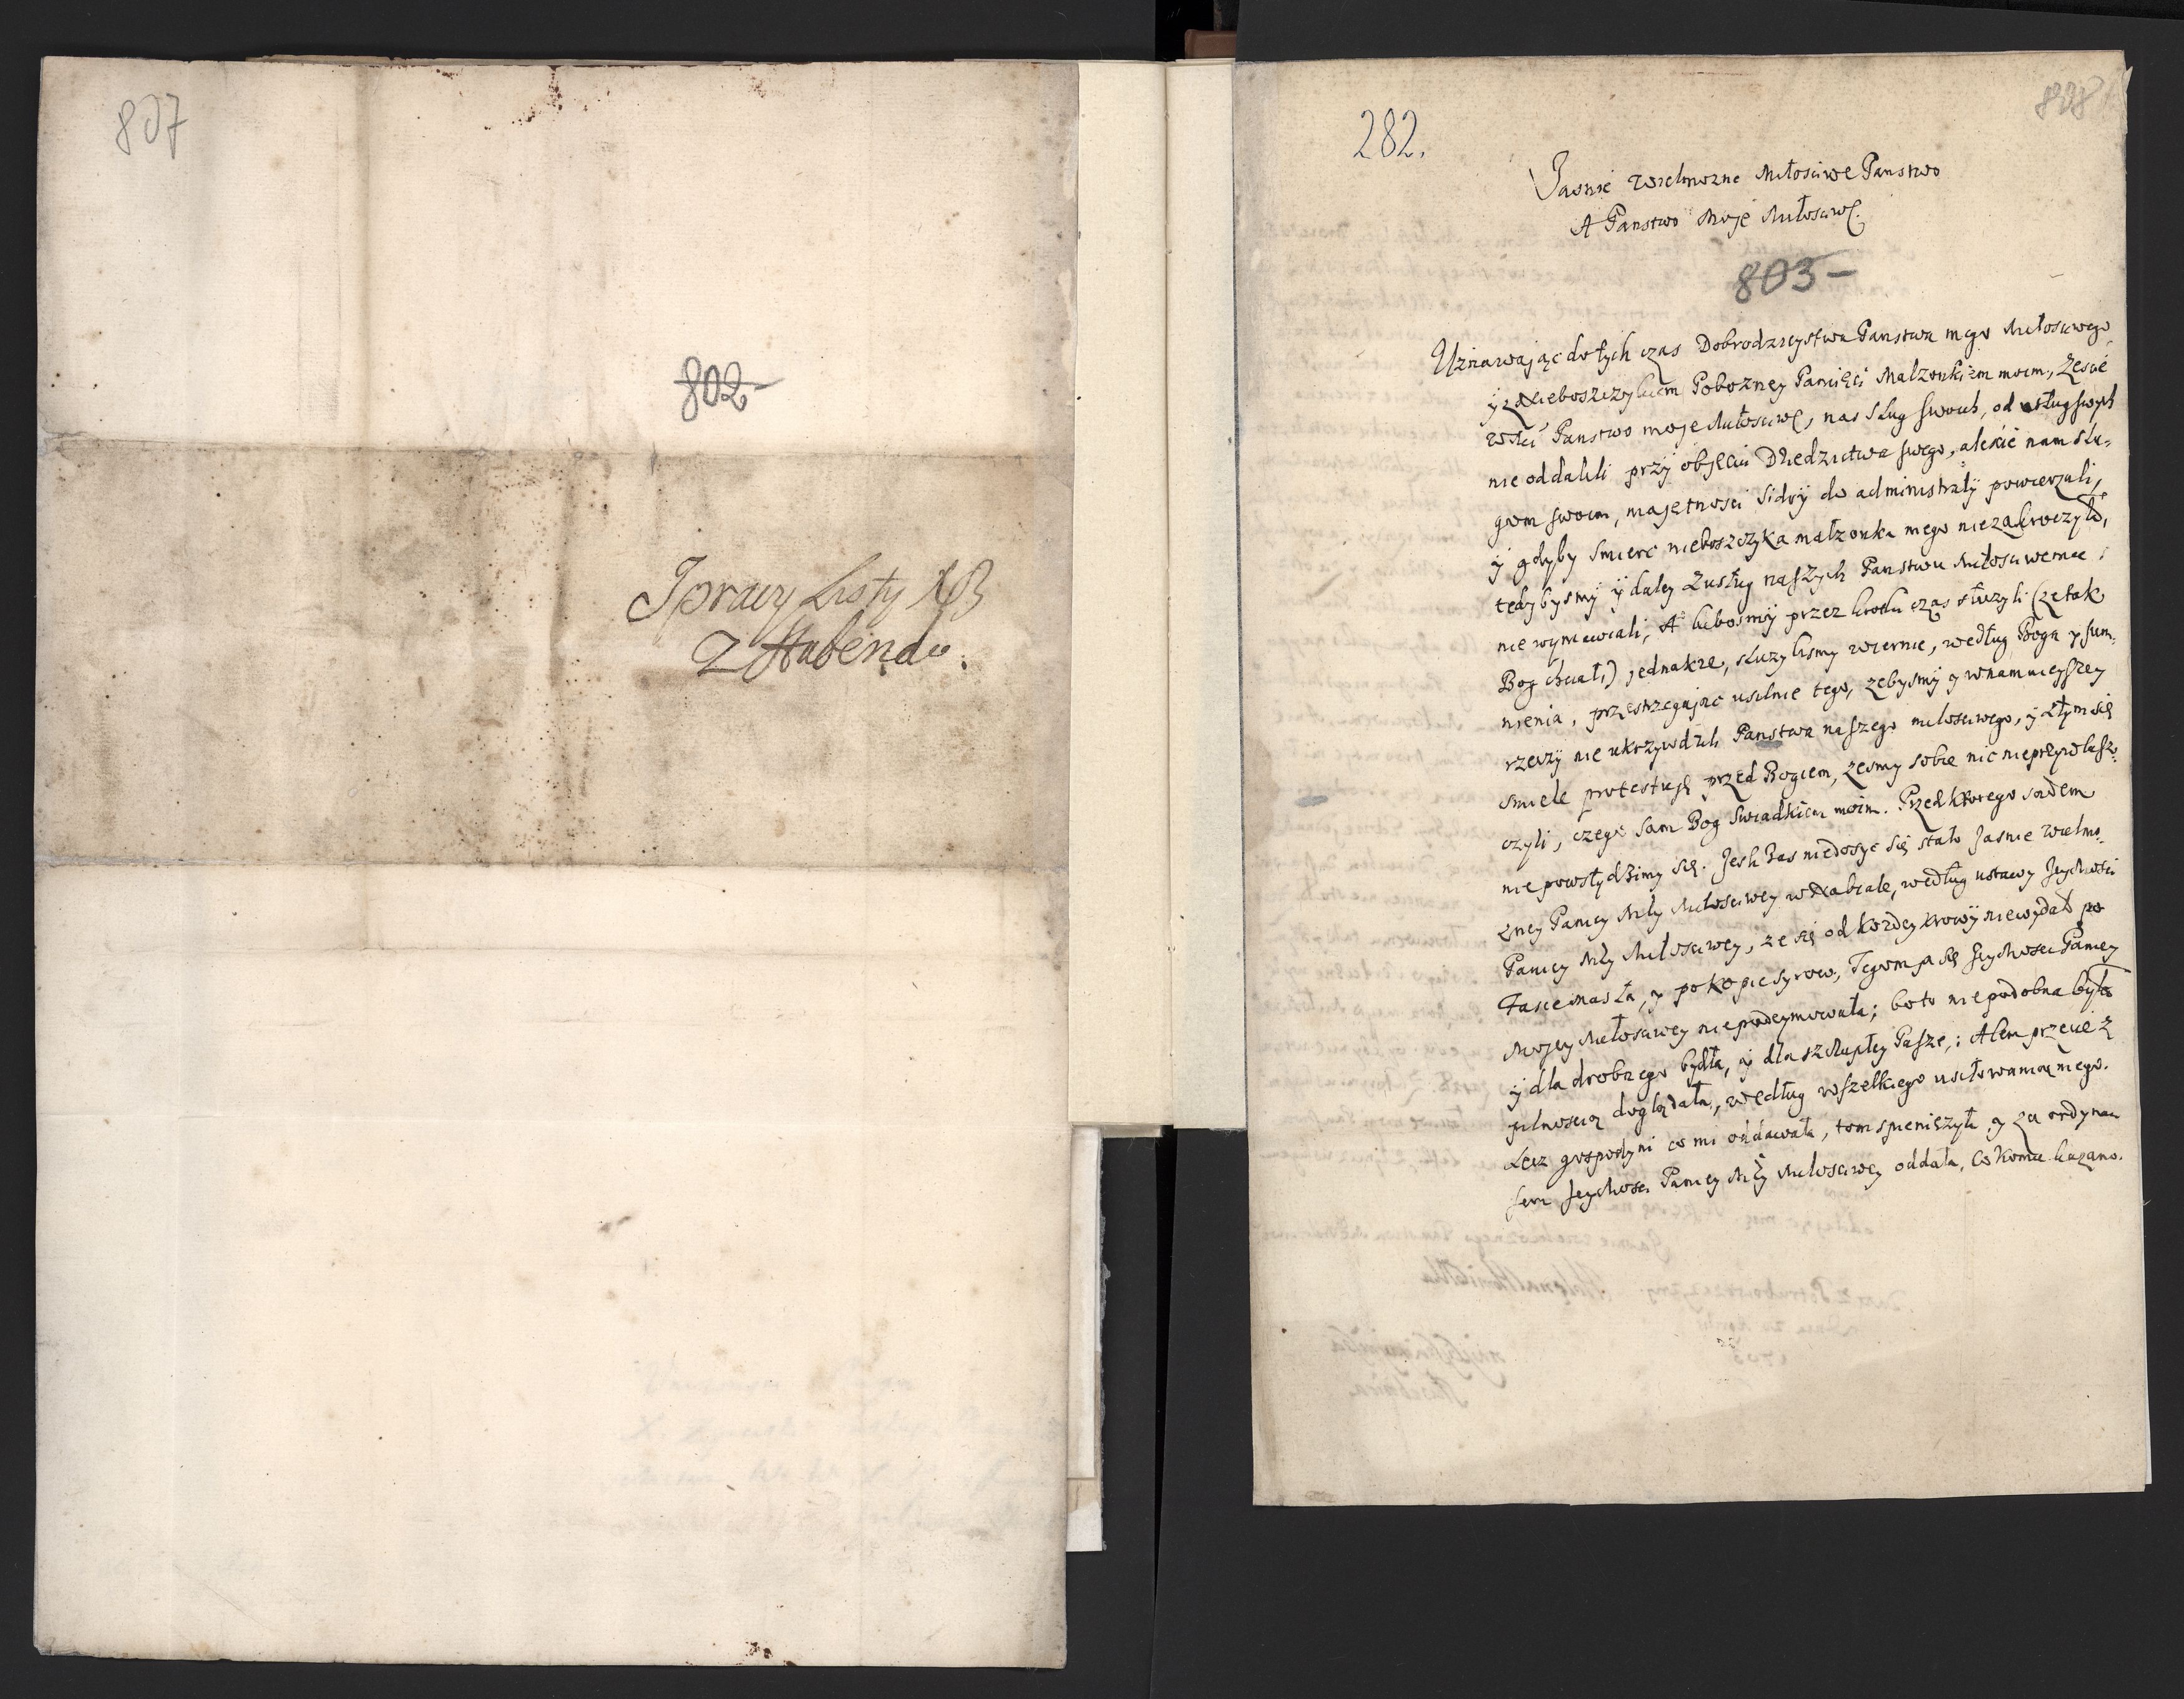 807
802-
Sprawy Listy
z Stabenau.
282.
808
Jasnie Wielmozne Miłosciwe Panstwo
A Panstwo Moje Miłosciwe.
803-
Uznawając do tych czas Dobrodzieystwa Panstwa mego Miłosciwego,
y z Nieboszczykiem Pobozney Pamięci Małzonkiem moim, Zescie
Wści Panstwo moje Miłosciwe, nas Sług swoich, od usług swych
nie oddalili przy objęciu Dziedzictwa swego, alescie nam słu-
gom swoim, majętnosci Sidry do administraty powierzali,
y gdyby smierc nieboszczyka małzonka mego nie zakroczyła,
tedy bysmy y daley z usług naszych Panstwu Miłosciwemu
nie wymawiali, A lubosmy przez krotki czas słuzyli (ze tak
Bog chciał) jednakze, słuzylismy wiernie, według Boga y sum-
nienia, przestrzegając usilnie tego, zebysmy y w namnieyszey
rzeczy nie ukrzywdzili Panstwa naszego miłosciwego, y z tym się
smiele protestuję przed Bogiem, zesmy sobie nic nieprzywłasz-
czyli, czego sam Bog swiadkiem moim. Przed ktorego sądem
nie powstydzimy się. Jesli zas niedosyc się stało Jasnie Wielmo-
zney Paniey Mey Miłosciwey w Nabiale, według ustawy Jeymosci
Paniey Mey Miłosciwey, ze się od kozdey krowy nie wydało po
Fasce Masła, y po kopie syrow, Tegom ja się Jeymosci Paniey
Mojey Miłosciwey niepodeymowała; bo to niepodobna było
y dla drobnego bydła, y dla szczupłey Pasze; Alem przecie z
pilnoscią doglądała, według wszelkiego usiłowania mego.
Lecz gospodyni co mi oddawała, tom spieniezyła y za ordynan
sem Jeymosci Paniey Mey Miłosciwey oddała, co komu kazano.